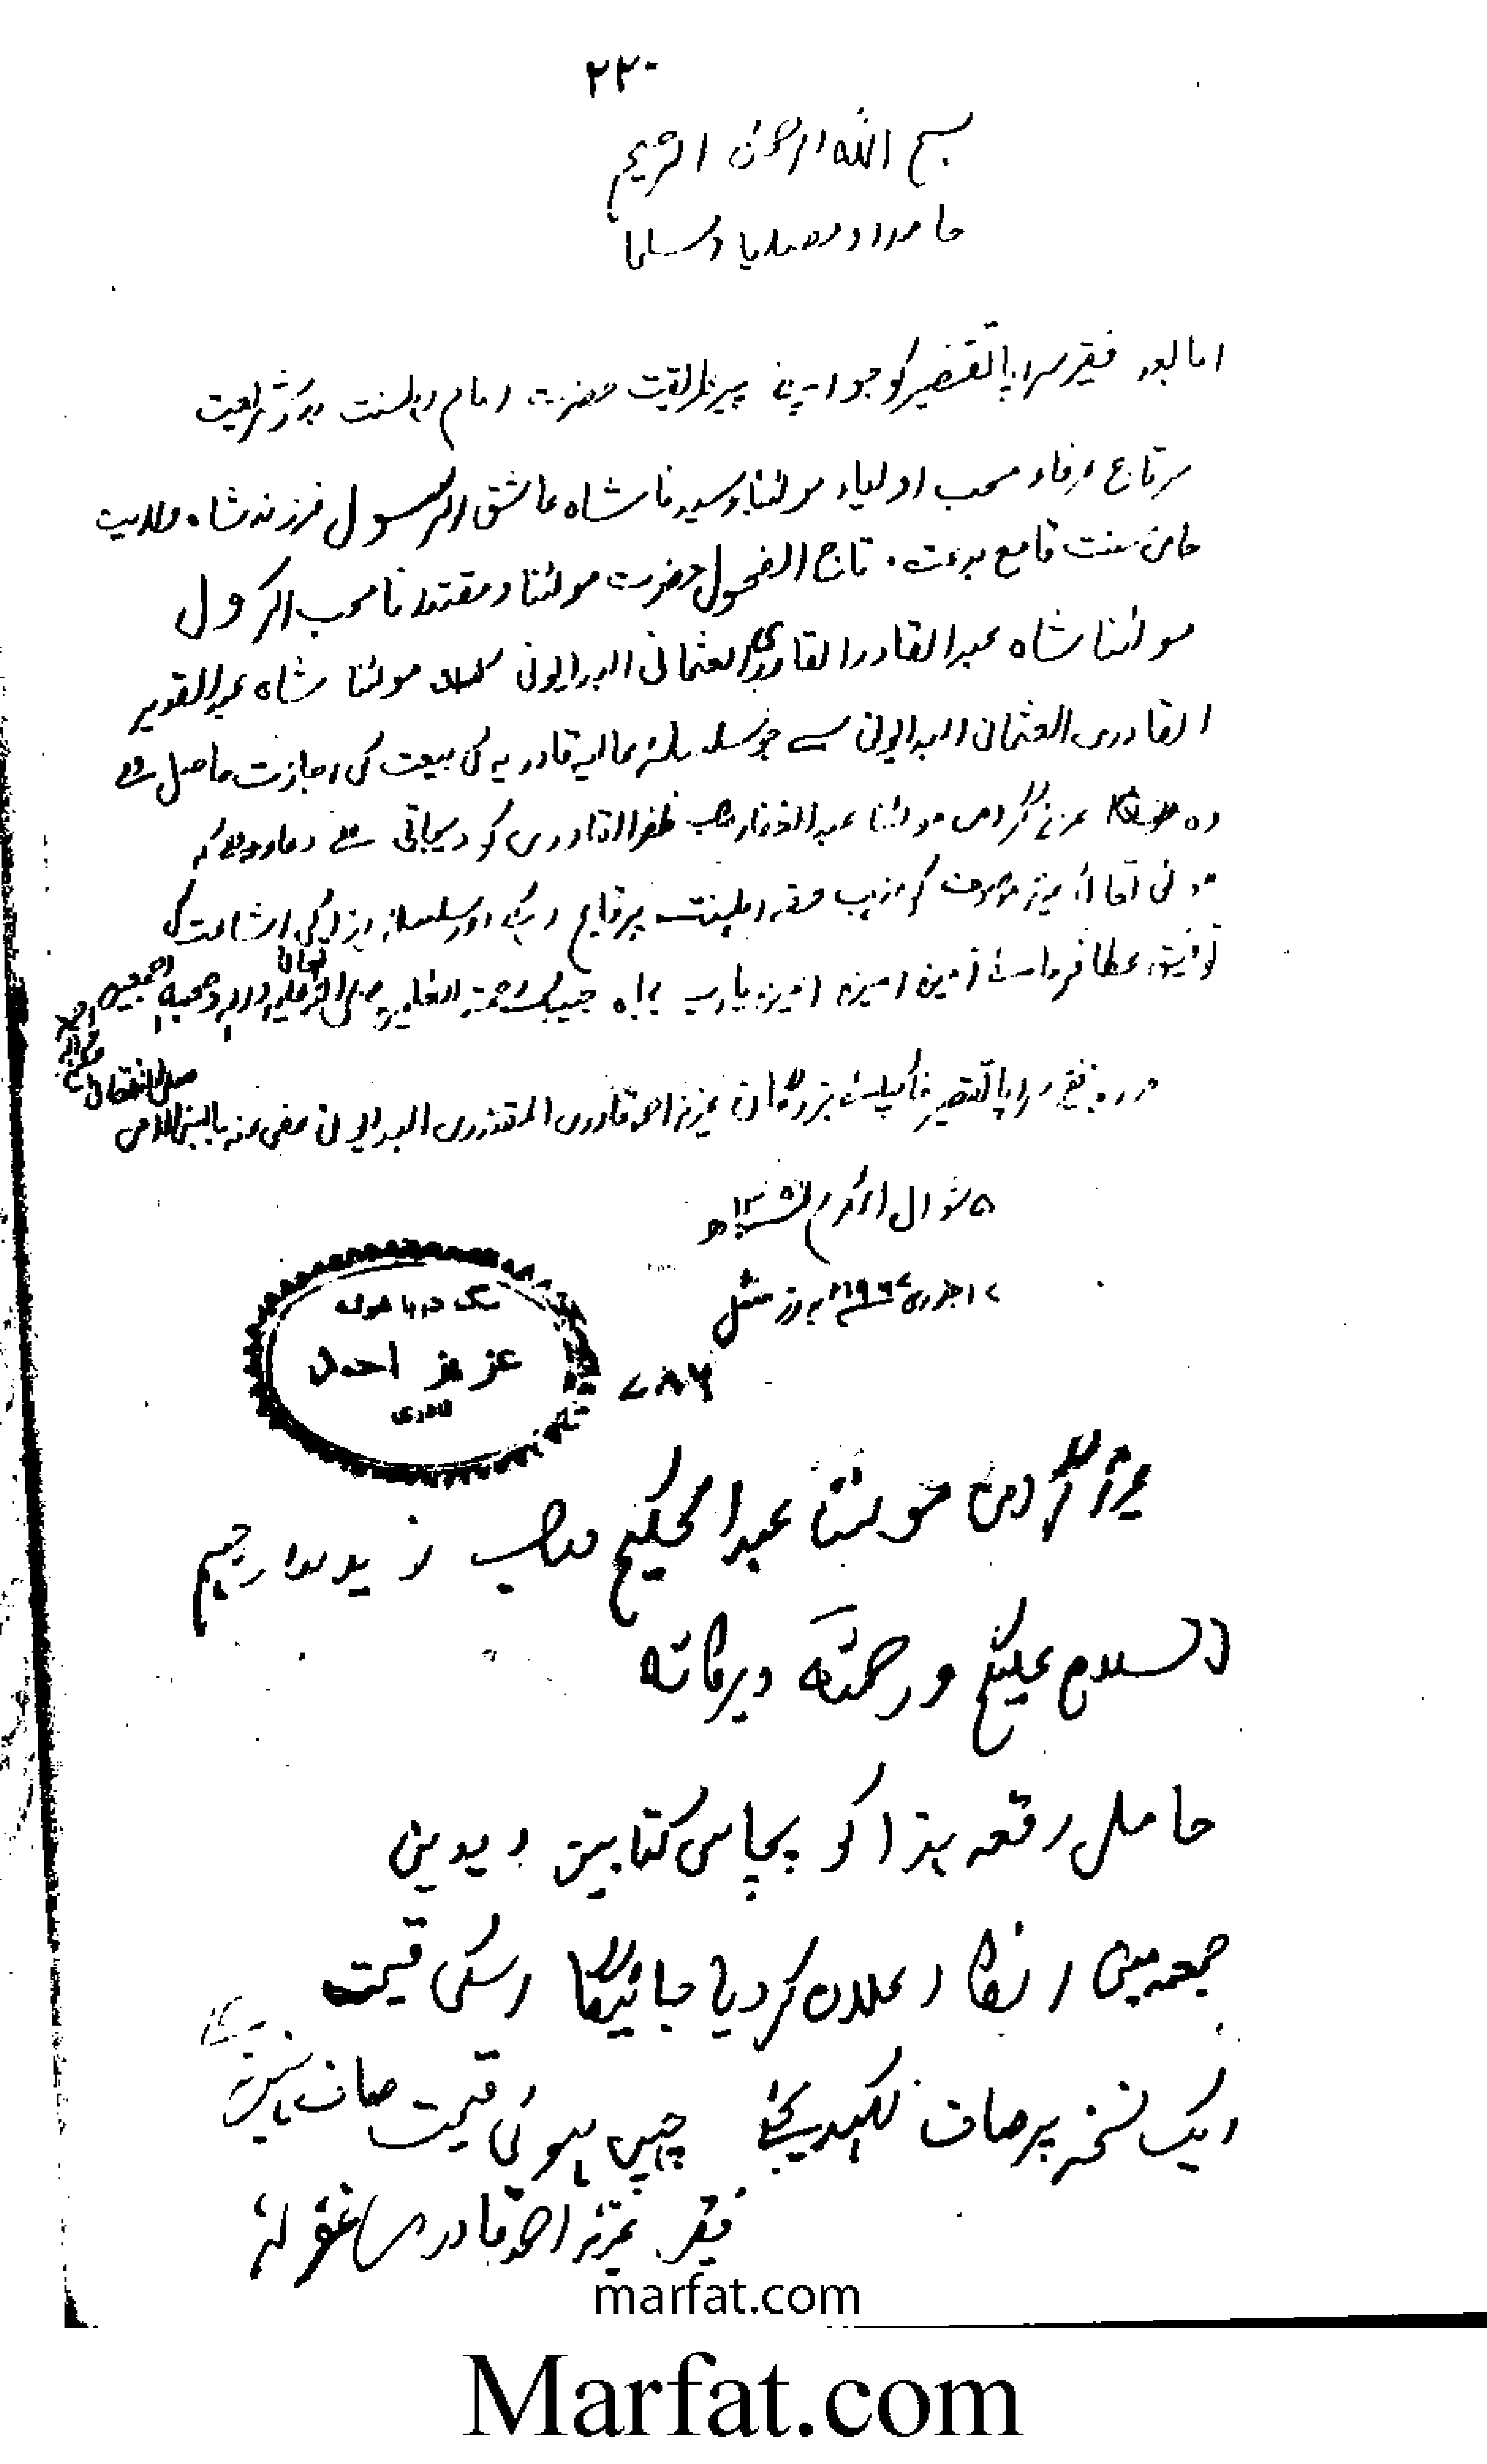 ۲۲۰
بسم اللہ الرحمٰن الرحیم
حامدا و مصلیا و مسلما
اما بعد فقیر سراپا تقصیر کو جو اپنے پیر طریقت حضرت امام اہلسنت شریعت
سرتاج عرفاء محب اولیاء مولٰنا و سیدنا شاہ عاشق الرسول فرزند شاہ ولایت
حامی سنت قامع بدعت . تاج الفحول حضرت مولٰنا و مقتدانا محب الرسول
مولٰنا شاہ عبدالقادر القادری العثمانی البدایونی مولٰنا شاہ عبدالقدیر
القادری العثمانی البدایونی سے جو سلسلہ عالیہ قادریہ کی بیعت کی اجازت حاصل ہے
وہ عزیز گرامی مولٰنا عبدالغفار صاحب ظفر القادری کو دیجاتی ہے دعا ہے کہ
مولی تعالٰی عزیز موصوف کو مذہب حقہ اہلسنت پر قائم رکھے اور سلسلہ ہذا کی اشاعت کی
توفیق عطا فرمائے آمین امین امین یارب بجاہ حبیبک رحمۃ للعلمین صلی اللہ تعالی علیہ والہ وصحبہ اجمعین
فقیر سراپا تقصیر خاکپائے بزرگان عزیز احمد قادری المقتدری البدایونی عفی عنہ بالنبی الامی
صلی اللہ تعالی
۵ شوال المکرم
۱۷ جنوری ۱۹۶۷ء بروز منگل
سگ دربار غوثیہ
عزیز احمد
قادری
۷۸۶
عزیز گرامی مولٰنا عبدالحکیم صاحب زید مدارجہم
السلام علیکم ورحمتہ وبرکاتہ
حامل رقعہ ہذا کو پچاس کتابیں دیدیں
جمعہ میں انکا اعلان کردیا جائیگا اسکی قیمت
ایک نسخہ پر صاف لکھدیجئے چھپی ہوئی قیمت صاف نہیں ہے
فقیر عزیز احمد قادری غفرلہ
marfat.com
Marfat.com